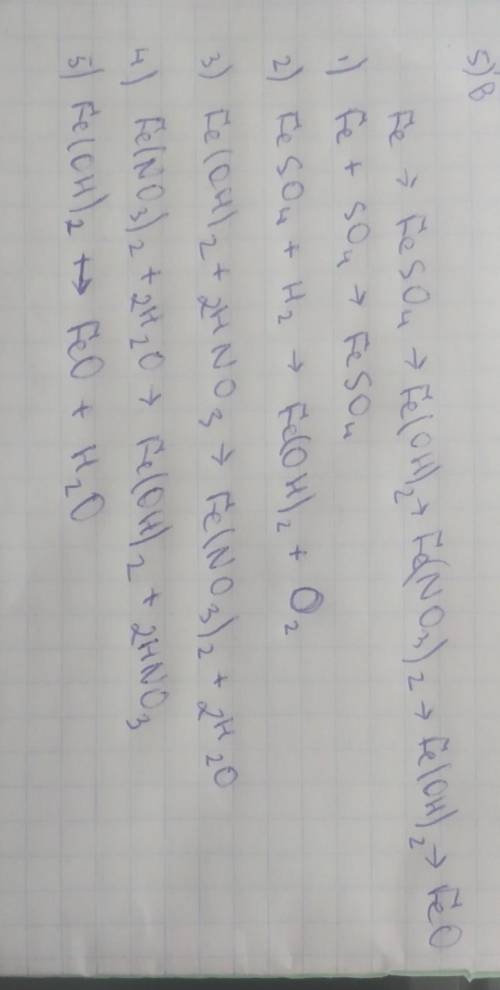 5) В
Fe → FeSO₄ → Fe(OH)₂ → Fe(NO₃)₂ → Fe(OH)₂ → FeO
1) Fe + SO₄ → FeSO₄
2) FeSO₄ + H₂ → Fe(OH)₂ + O₂
3) Fe(OH)₂ + 2HNO₃ → Fe(NO₃)₂ + 2H₂O
4) Fe(NO₃)₂ + 2H₂O → Fe(OH)₂ + 2HNO₃
5) Fe(OH)₂ → FeO + H₂O